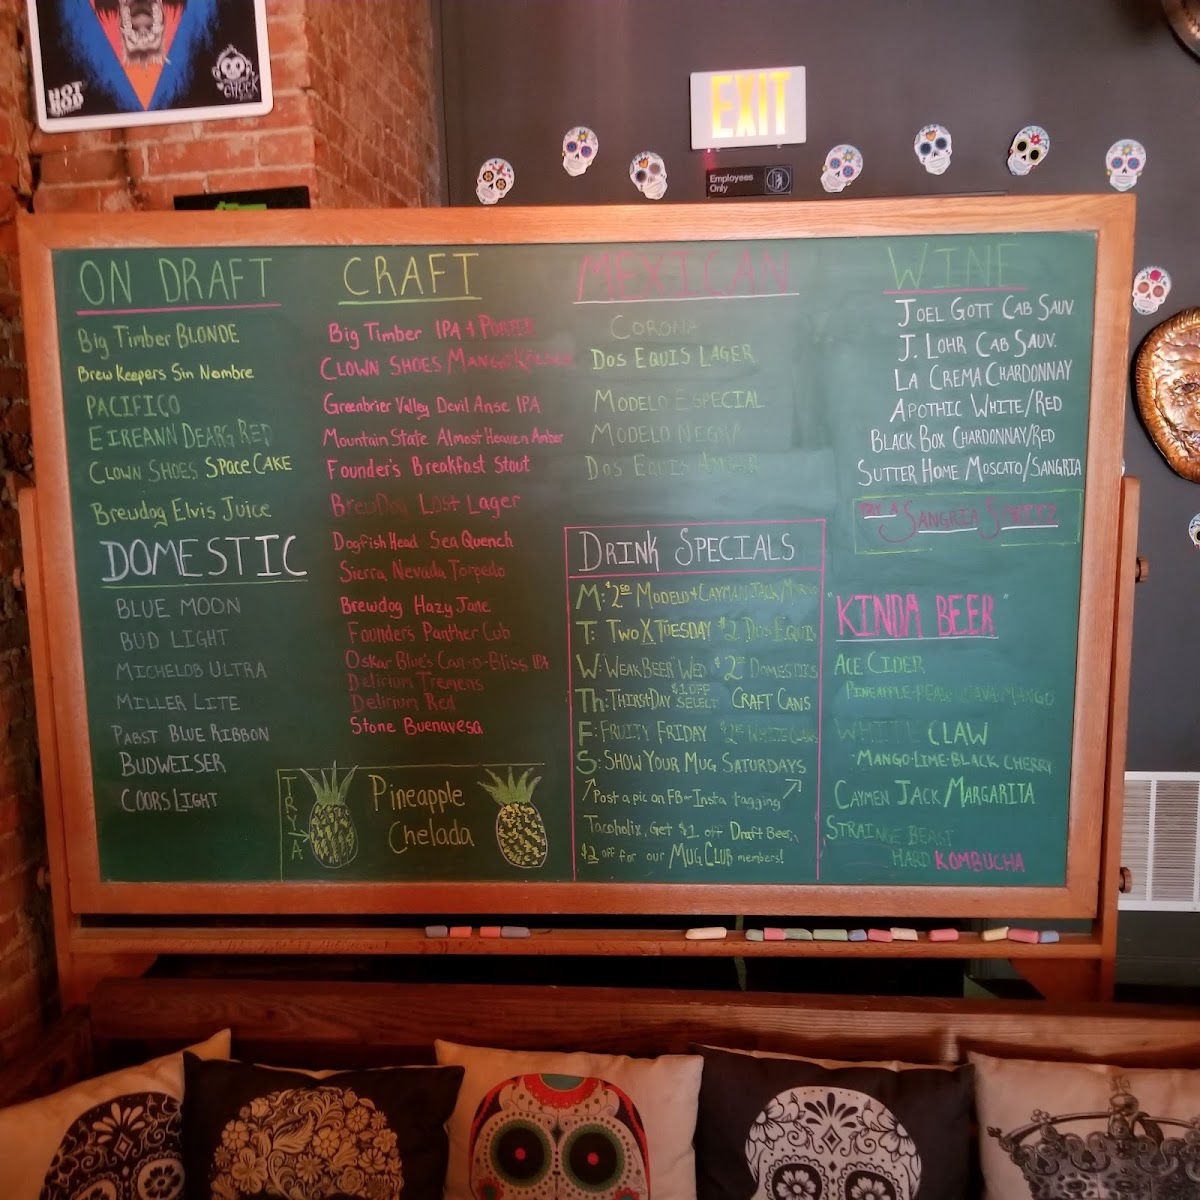 HOT
ROD
CHUCK
EXIT
Employees
Only
ON DRAFT
Big Timber BLONDE
Brew Keepers Sin Nombre
PACIFICO
EIREANN DEARG RED
CLOWN SHOES SPACE CAKE
Brewdog Elvis Juice
DOMESTIC
BLUE MOON
BUD LIGHT
MICHELOB ULTRA
MILLER LITE
PABST BLUE RIBBON
BUDWEISER
COORS LIGHT
CRAFT
Big Timber IPA + PORTER
CLOWN SHOES MANGO
Greenbrier Valley Devil Anse IPA
Mountain State Almost Heaven Amber
Founder's Breakfast Stout
BrewDog Lost Lager
Dogfish Head Sea Quench
Sierra Nevada Torpedo
Brewdog Hazy Jane
Founder's Panther Cub
Oskar Blue's Can-o-Bliss IPA
Delirium Tremens
Delirium Red
Stone Buenavesa
TRY A
Pineapple
Chelada
MEXICAN
CORONA
DOS EQUIS LAGER
MODELO ESPECIAL
MODELO NEGRA
DOS EQUIS AMBER
DRINK SPECIALS
M: $2.50 MODELO + CAYMAN JACK/MARG
T: TWO X TUESDAY $2 DOS EQUIS
W: "WEAK BEER" WED $2 DOMESTICS
Th: THIRST-DAY $1 OFF SELECT CRAFT CANS
F: FRUITY FRIDAY WHITE CLAWS
S: SHOW YOUR MUG SATURDAYS
Post a pic on FB or Insta tagging
Tacoholix, Get $1 off Draft Beer,
$2 off for our MUG CLUB members!
WINE
JOEL GOTT CAB SAUV
J. LOHR CAB SAUV.
LA CREMA CHARDONNAY
APOTHIC WHITE/RED
BLACK BOX CHARDONNAY/RED
SUTTER HOME MOSCATO/SANGRIA
TRY A SANGRIA SPRITZ
"KINDA BEER"
ACE CIDER
PINEAPPLE-PEAR-GUAVA-MANGO
WHITE CLAW
MANGO-LIME-BLACK CHERRY
CAYMEN JACK/MARGARITA
STRAINGE BEAST
HARD KOMBUCHA